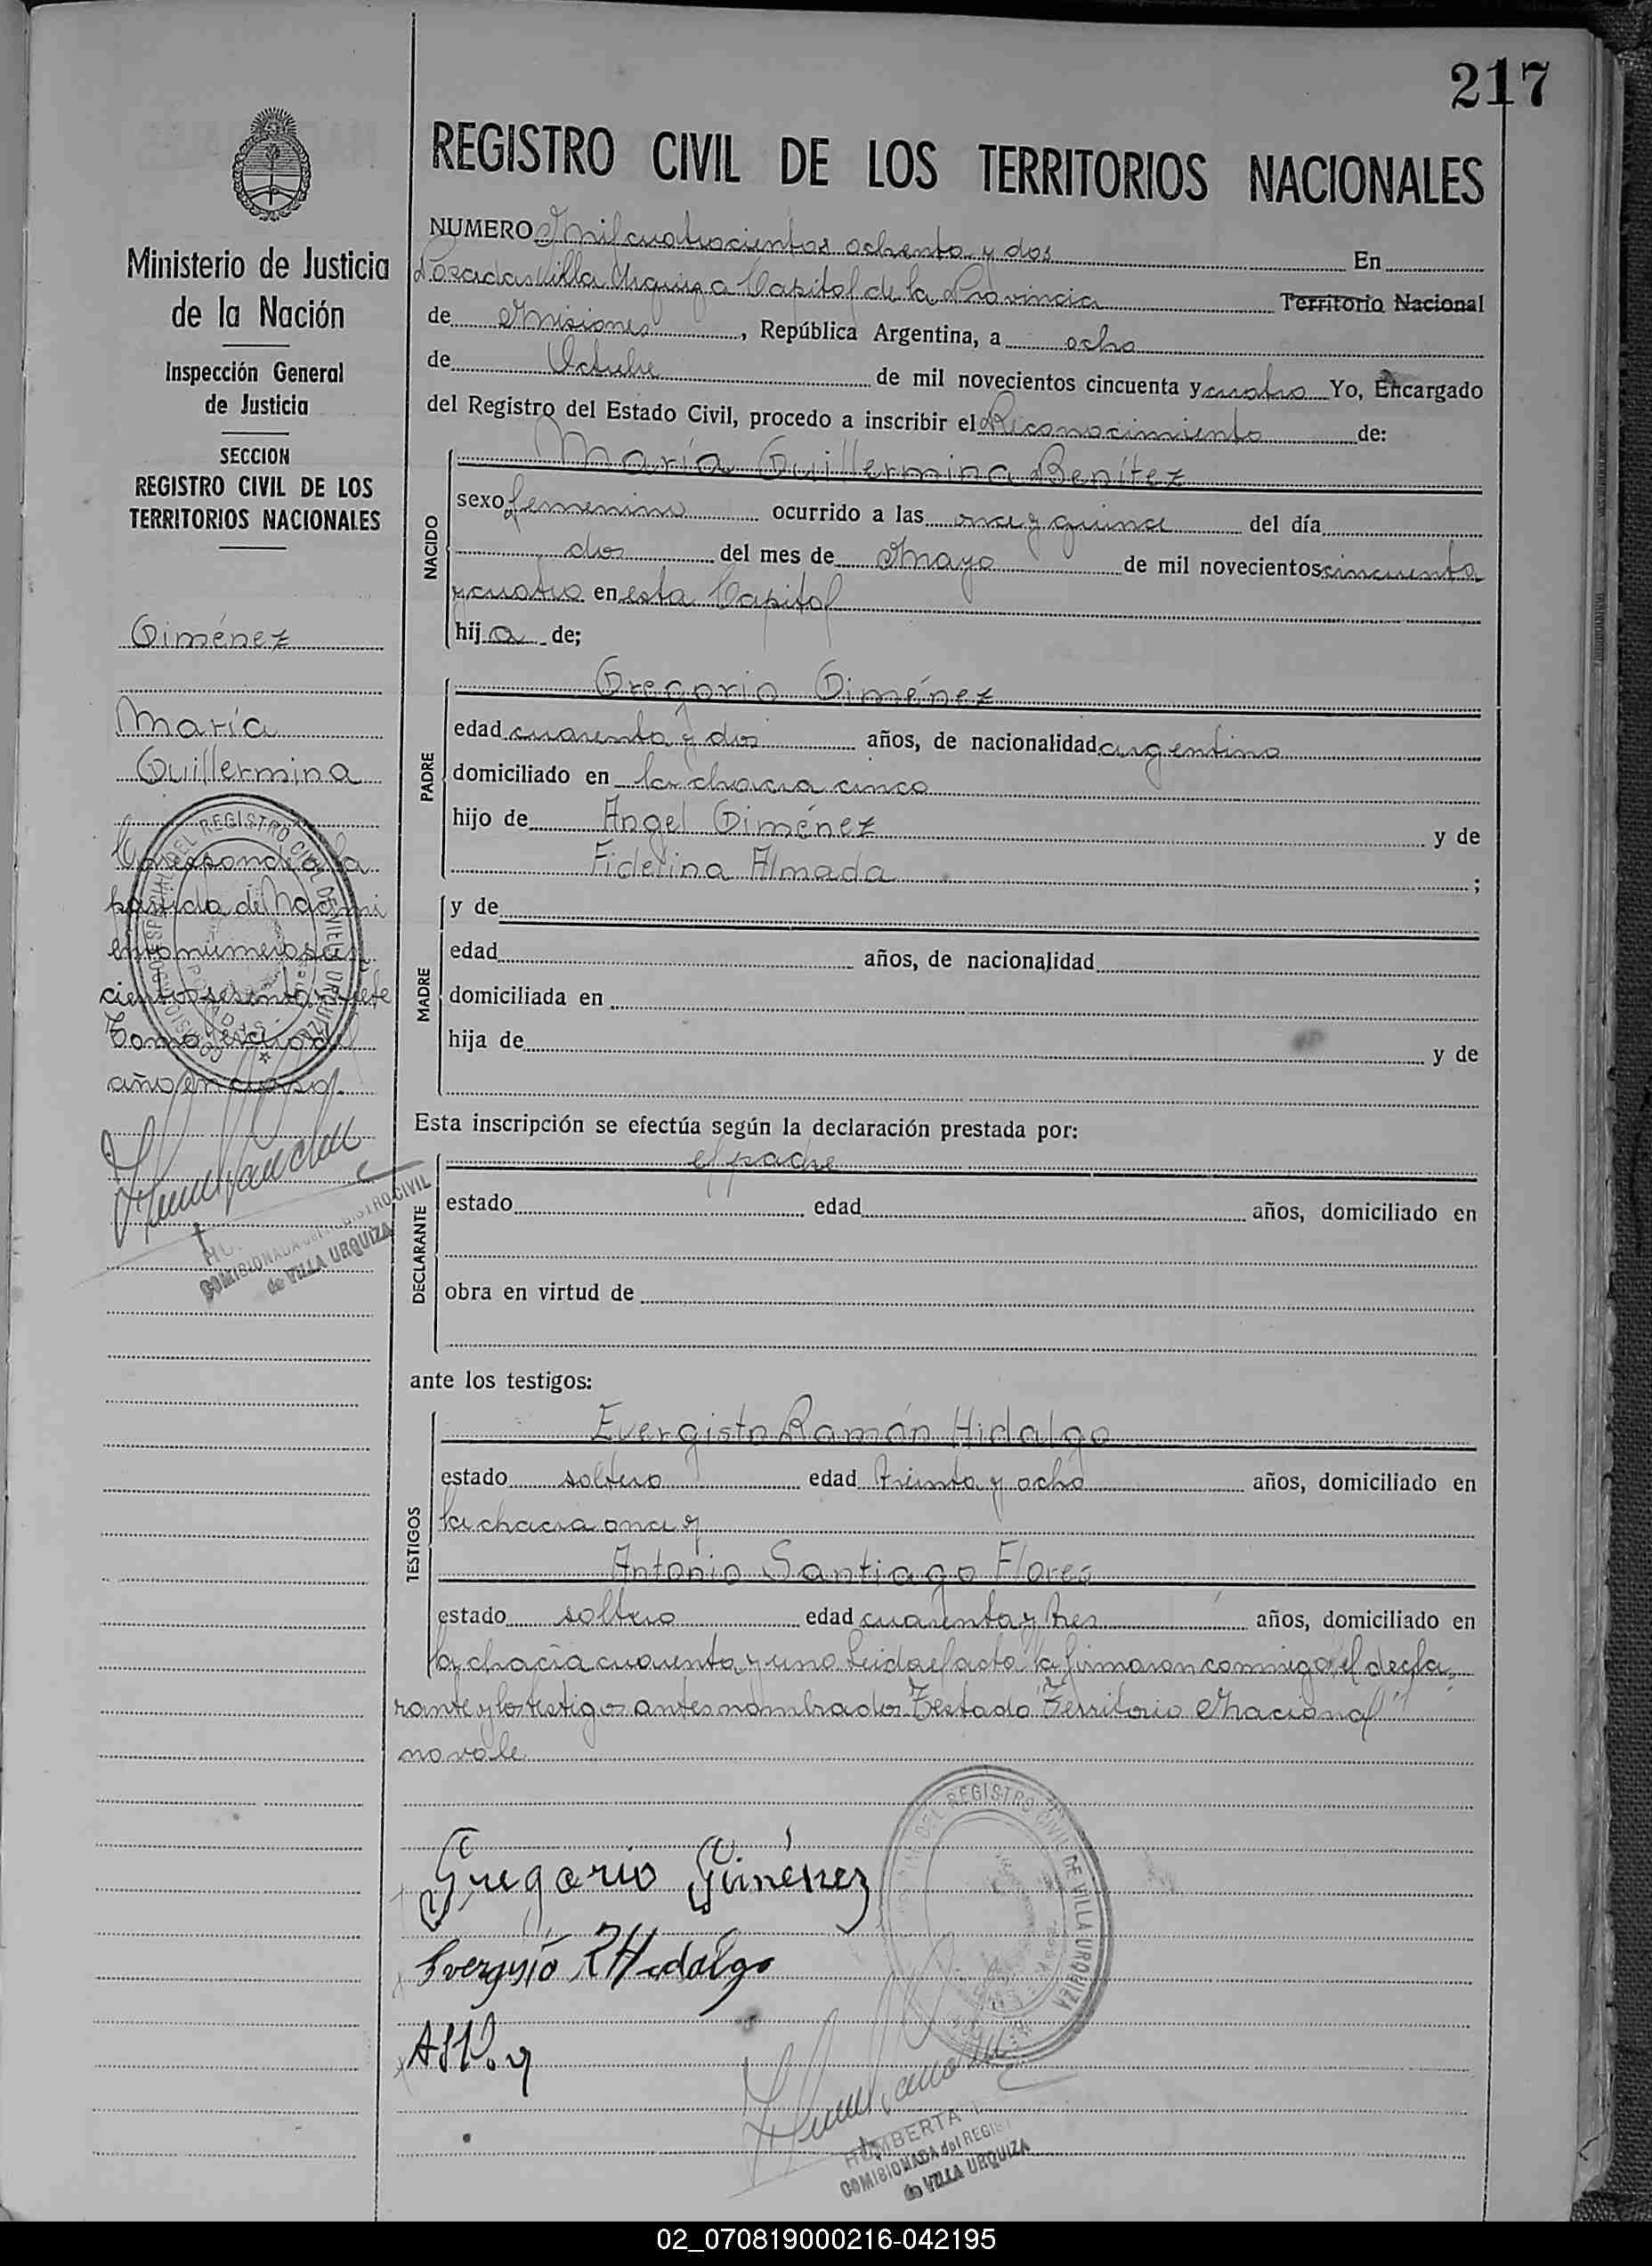 217
REGISTRO CIVIL DE LOS TERRITORIOS NACIONALES
Ministerio de Justicia
de la Nación
Inspección General
de Justicia
SECCION
REGISTRO CIVIL DE LOS
TERRITORIOS NACIONALES
Giménez
María
Guillermina
Corresponde a la
partida de Naci
ento numero
cientos sesenta y siete
Tomo del
año en curso
COMISIONADA del REGISTRO CIVIL
de VILLA URQUIZA
NUMERO Mil cuatrocientos ochenta y dos En
Posadas Villa Urquiza Capital de la Provincia Territorio Nacional
de Misiones, República Argentina, a ocho
de Octubre de mil novecientos cincuenta y cuatro Yo, Encargado
del Registro del Estado Civil, procedo a inscribir el Reconocimiento de:
NACIDO
María Guillermina Benítez
sexo femenino ocurrido a las once y quince del día
dos del mes de Mayo de mil novecientos cincuenta
y cuatro en esta Capital
hija de;
PADRE
Gregorio Giménez
edad cuarenta y dos años, de nacionalidad argentino
domiciliado en la chacra cinco
hijo de Angel Giménez y de
Fidelina Almada ;
MADRE
y de
edad años, de nacionalidad
domiciliada en
hija de y de
Esta inscripción se efectúa según la declaración prestada por:
DECLARANTE
el padre
estado edad años, domiciliado en
obra en virtud de
ante los testigos:
TESTIGOS
Evergisto Ramón Hidalgo
estado soltero edad treinta y ocho años, domiciliado en
la chacra once y
Antonio Santiago Flores
estado soltero edad cuarenta y tres años, domiciliado en
la chacra cuarenta y uno Leida el acta la firmaron conmigo el decla
rante y los testigos antes nombrados Testado "Territorio Nacional"
no vale
Gregorio Giménez
Evergisto R Hidalgo
DEL REGISTRO CIVIL DE VILLA URQUIZA
HUMBERTA
COMISIONADA del REGIS
de VILLA URQUIZA
02_070819000216-042195